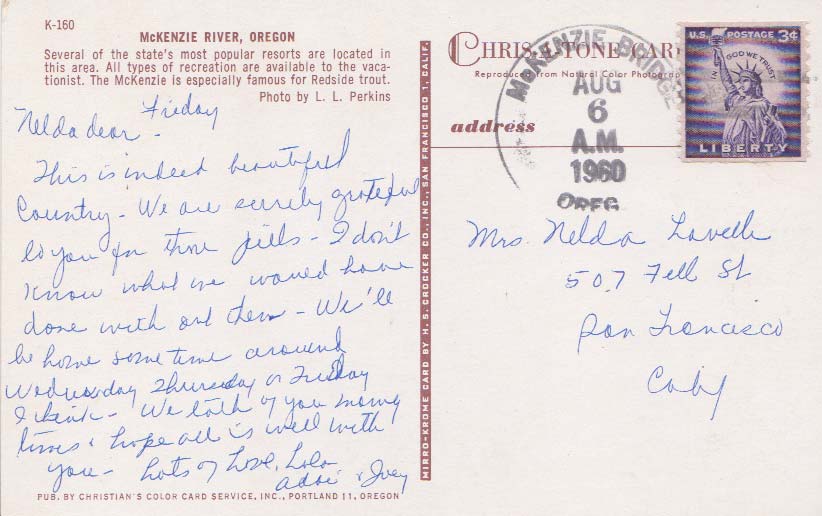 K-160
McKENZIE RIVER, OREGON
Several of the state's most popular resorts are located in
this area. All types of recreation are available to the vaca-
tionist. The McKenzie is especially famous for Redside trout.
Photo by L. L. Perkins
Friday
Nelda dear -
This is indeed beautiful
Country - We are surely grateful
to you for those pills - I don't
know what we would have
done with out them - We'll
be home some time around
Wednesday Thursday or Friday
I think - We talk of you many
times & hope all is well with
you - Lots of Love, Lola
& Joey
PUB. BY CHRISTIAN'S COLOR CARD SERVICE, INC., PORTLAND 11, OREGON
MIRRO-KROME CARD BY H. S. CROCKER CO., INC., SAN FRANCISCO 1, CALIF.
CHRIS-A-TONE CARD
Reproduced from Natural Color Photograp
address
McKENZIE BRIDGE
AUG
6
A.M.
1960
OREG.
U.S. POSTAGE 3¢
IN GOD WE TRUST
LIBERTY
Mrs. Nelda Lavelle
507 Fell St
San Francisco
Calif